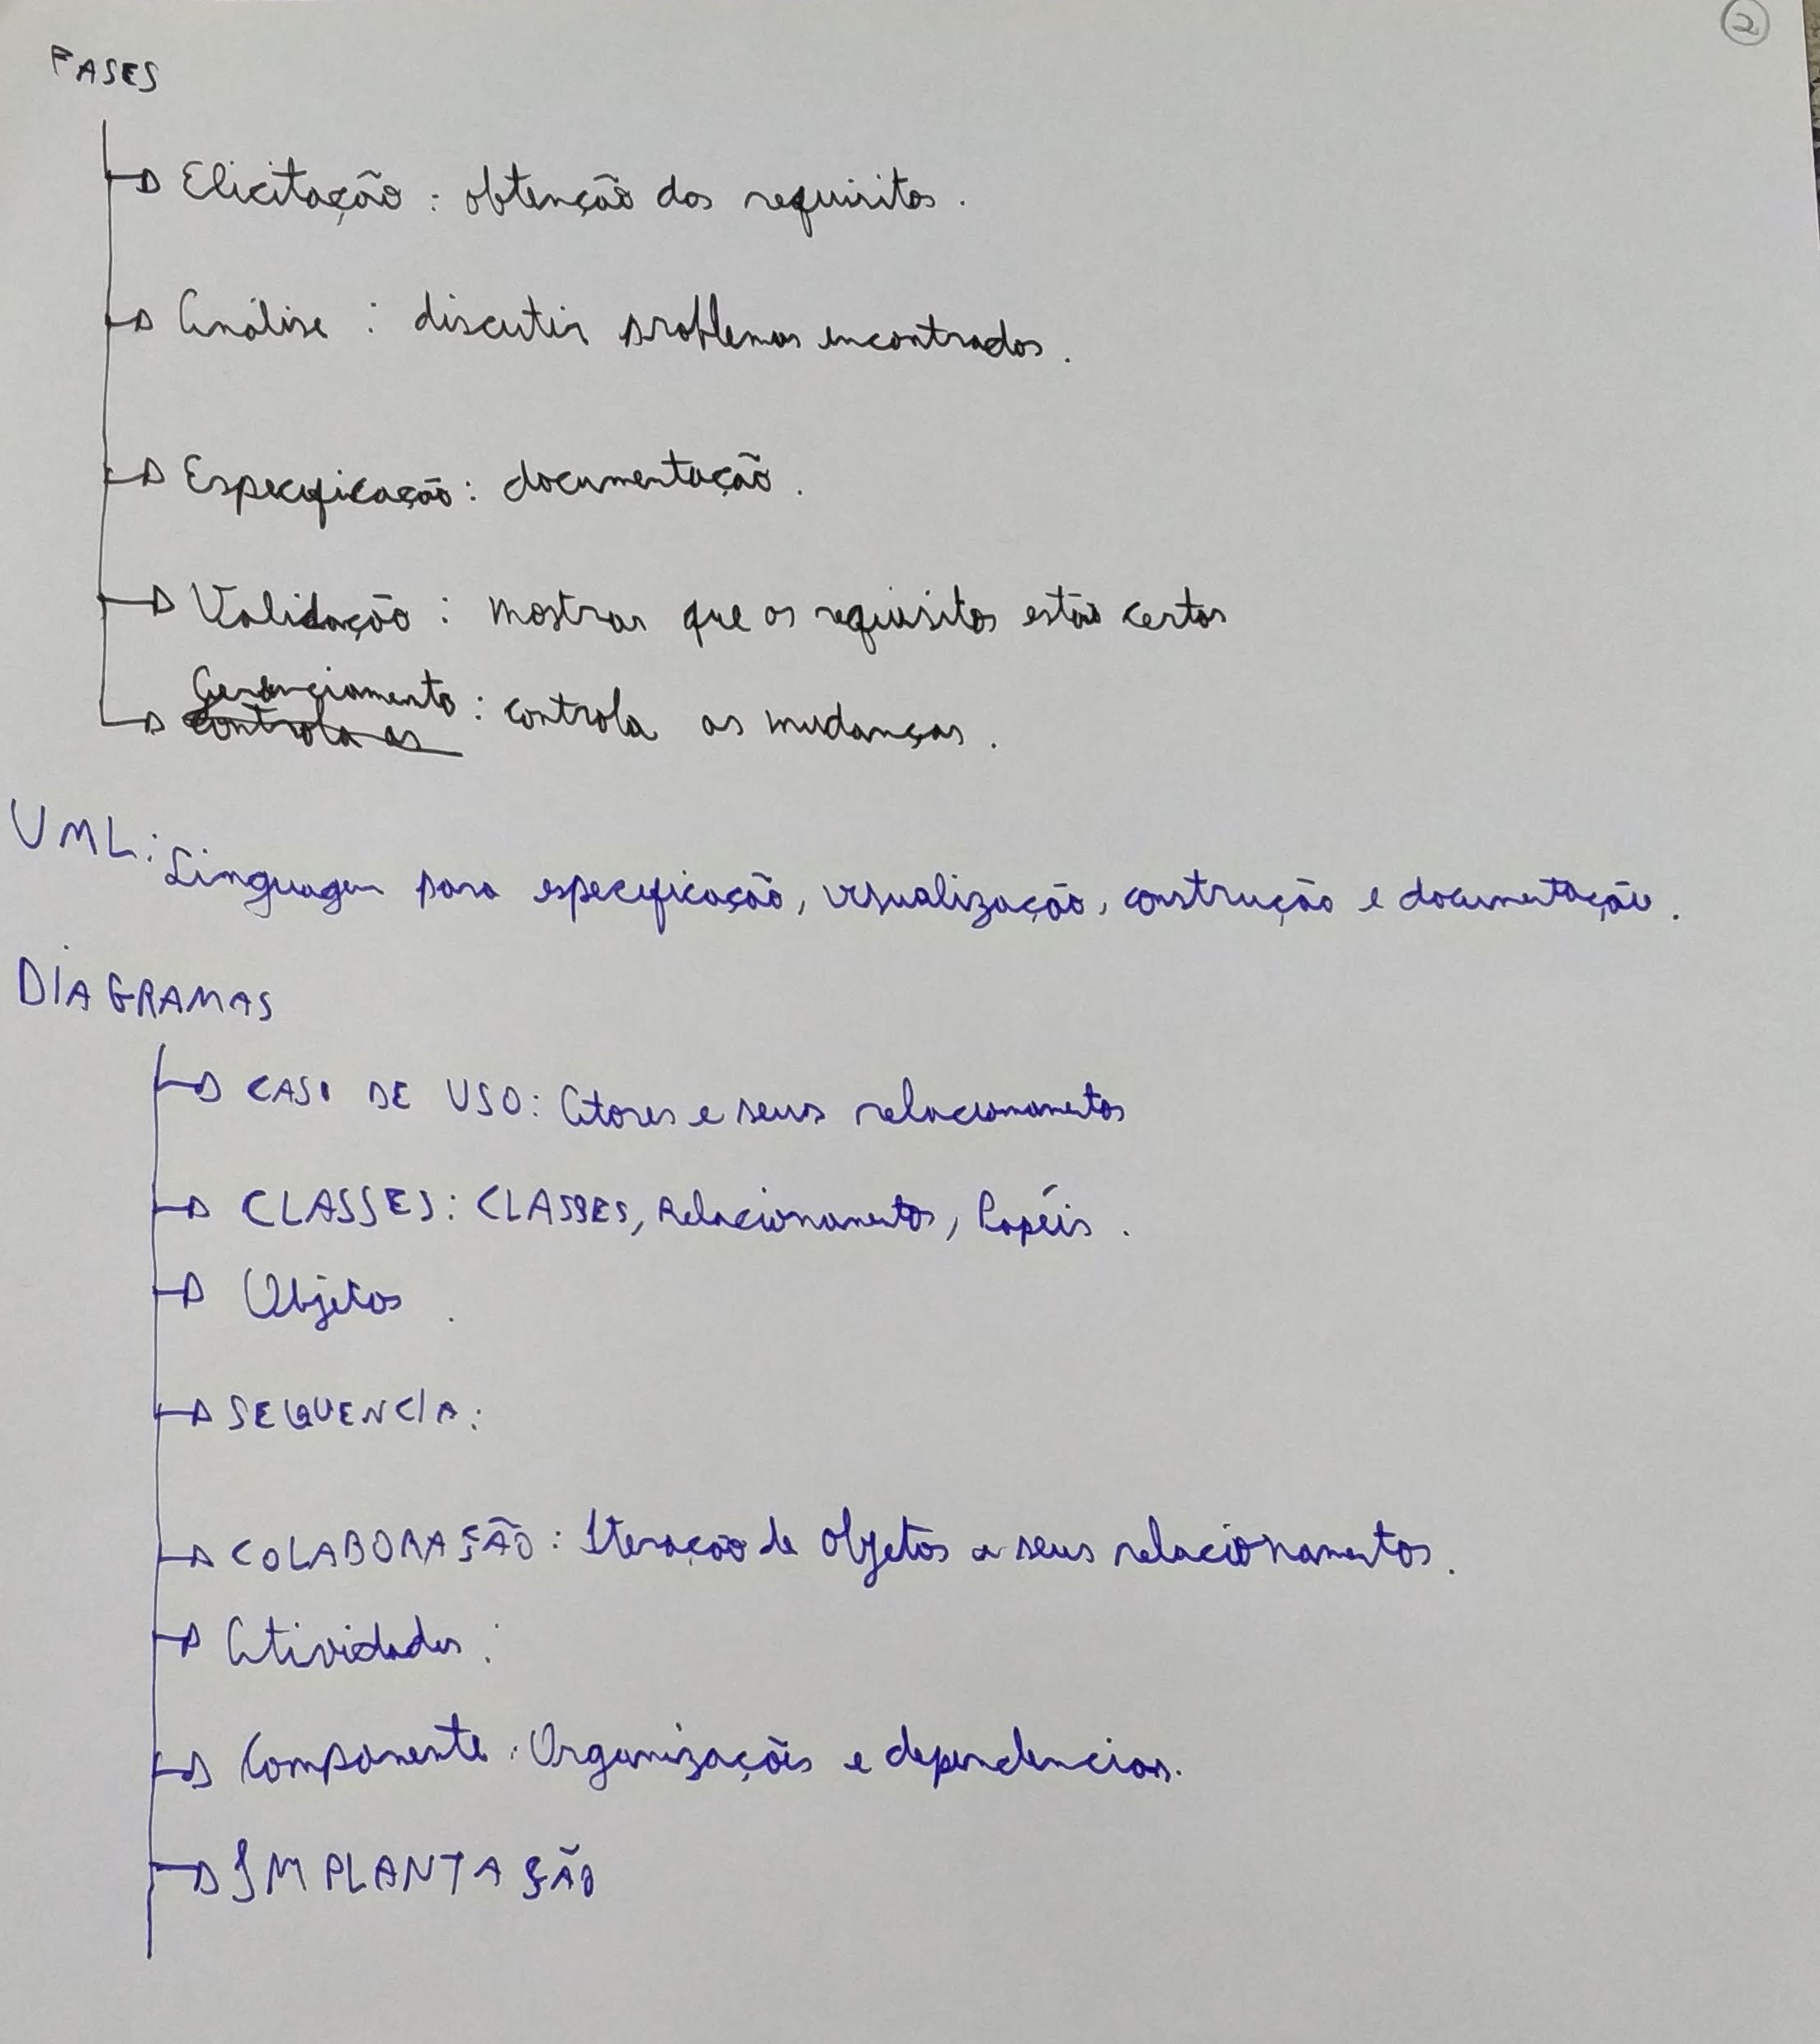 2
FASES
Elicitação : obtenção dos requisitos.
Análise : discutir problemas encontrados.
Especificação: documentação.
Validação : mostrar que os requisitos estão certos
Gerenciamento : controla as mudanças.
controla as
UML: Linguagem para especificação, visualização, construção e documentação.
DIAGRAMAS
CASO DE USO: Atores e seus relacionamentos
CLASSES: CLASSES, Relacionamentos, Papéis.
Objetos.
SEQUENCIA:
COLABORAÇÃO: Iteração de objetos e seus relacionamentos.
Atividades:
Componente: Organizações e dependencias.
IMPLANTAÇÃO